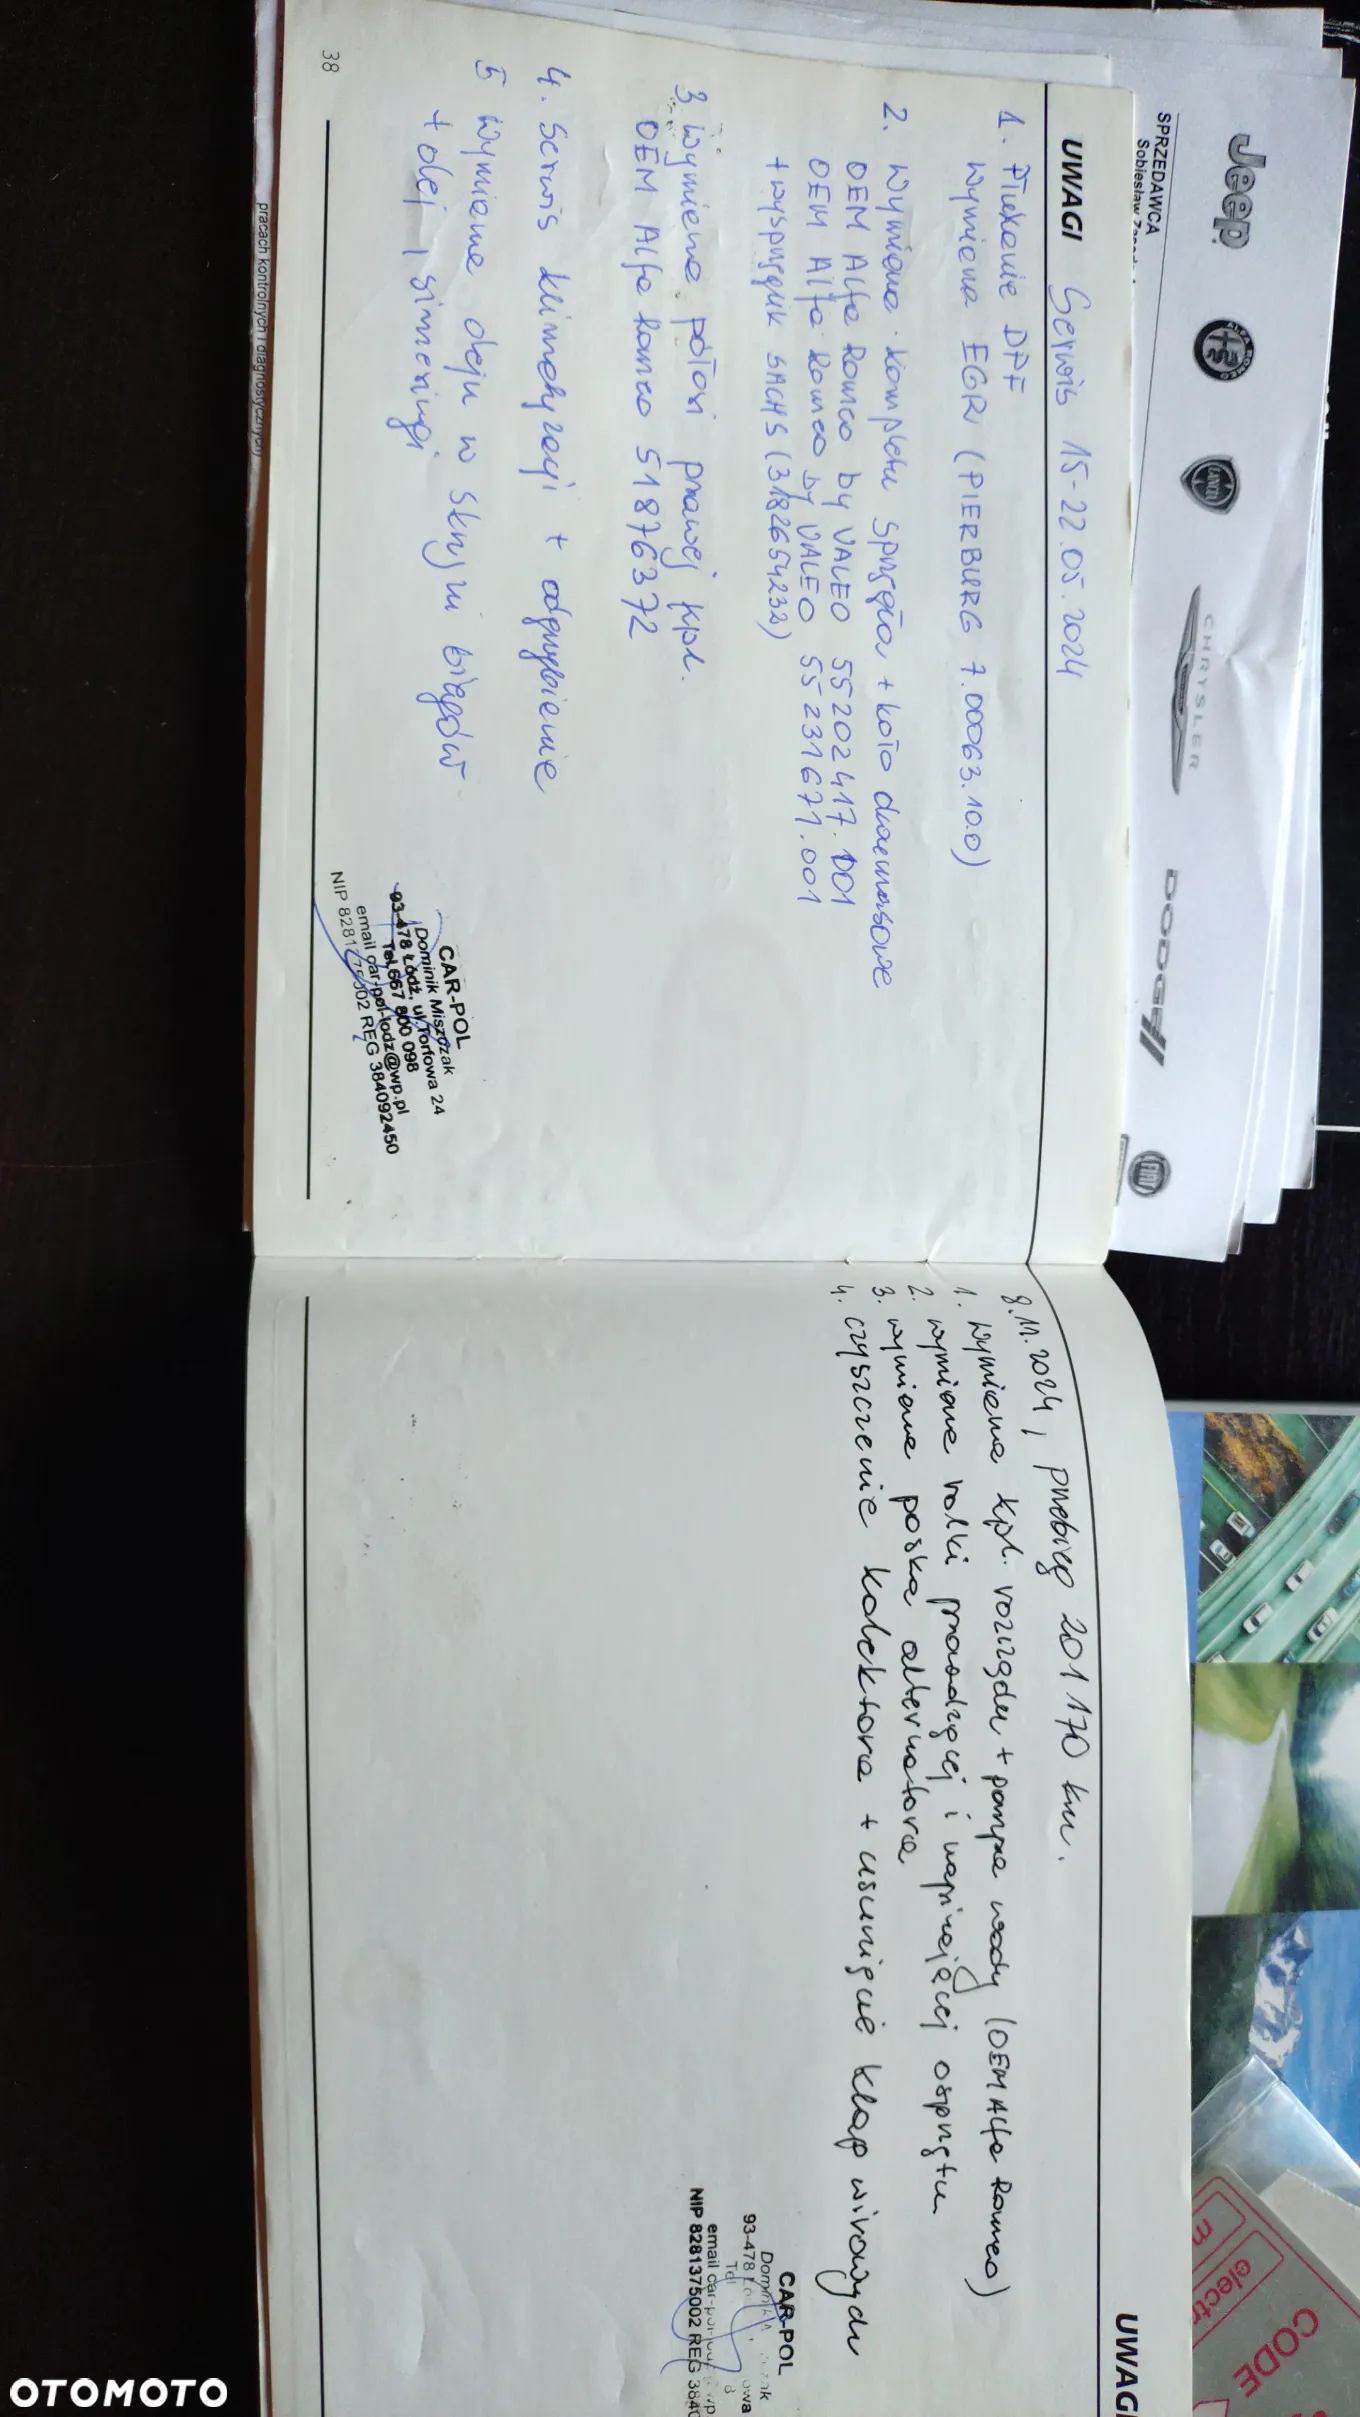 Jeep
SPRZEDAWCA
CHRYSLER
DODGE
FIAT
UWAGI Serwis 15-22.05.2024
1. Płukanie DPF
Wymiana EGR (PIERBURG 7.00063.10.0)
2. Wymiana kompletu sprzęgła + koło dwumasowe
OEM Alfa Romeo by VALEO 55202417.001
OEM Alfa Romeo by VALEO 55231671.001
+ wysprzęglik SACHS (3182654232)
3 Wymiana półosi prawej kpl.
OEM Alfa Romeo 51876372
4. Serwis klimatyzacji + odgrzybienie
5 Wymiana oleju w skrzyni biegów
+ olej, simeringi
CAR-POL
Dominik Miszczak
93-478 Łódź, ul.Torfowa 24
Tel.667 800 098
email car-pol-lodz@wp.pl
NIP 8281375002 REG 384092450
38
pracach kontrolnych i diagnostycznych)
UWAGI
8.11.2024, przebieg 201 170 km.
1. Wymiana kpl. rozrządu + pompa wody (OEM Alfa Romeo)
2. wymiana rolki prowadzącej i napinającej osprzętu
3. wymiana paska alternatora
4. czyszczenie kolektora + usunięcie klap wirowych
CAR-POL
93-478
NIP 8281375002 REG 3840
CODE
electr
m
OTOMOTO